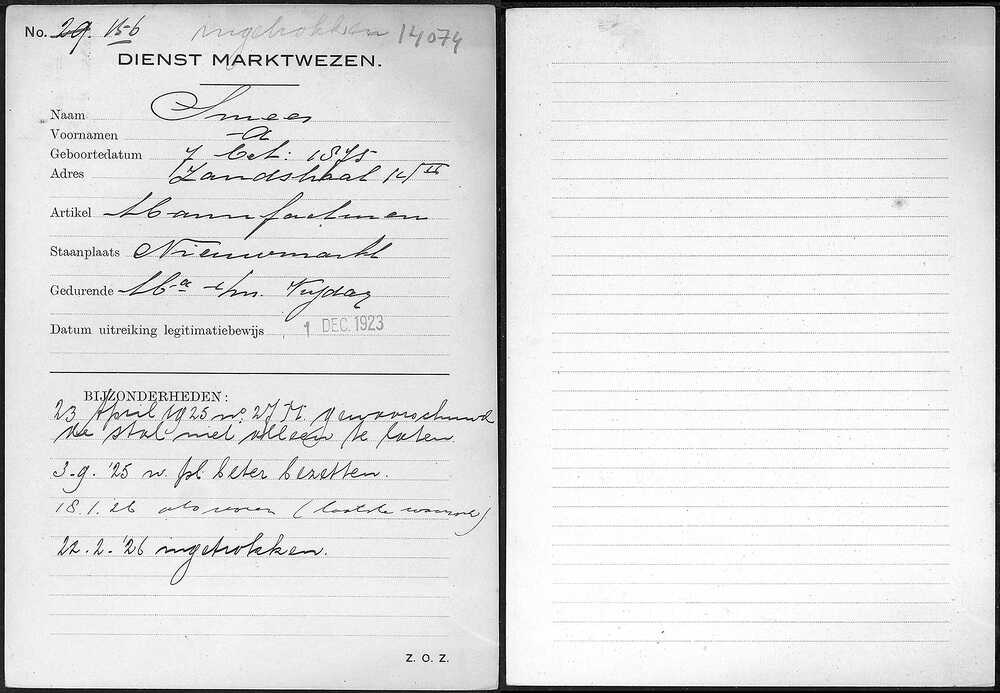 No. 29. 156 ingetrokken 14074
DIENST MARKTWEZEN.
Naam Smees
Voornamen A
Geboortedatum 7 Oct: 1875
Adres Zandstraat 14 II
Artikel Manufacturen
Staanplaats Nieuwmarkt
Gedurende Ma t/m. Vrijdag
Datum uitreiking legitimatiebewijs 1 DEC. 1923
BIJZONDERHEDEN:
23 April 1925 no. 27 M. gewaarschuwd
de stal niet alleen te laten.
3-9. '25 w. pl. beter bezetten.
18.1.26 als voren (laatste waarsch)
22.2.'26 ingetrokken.
Z. O. Z.